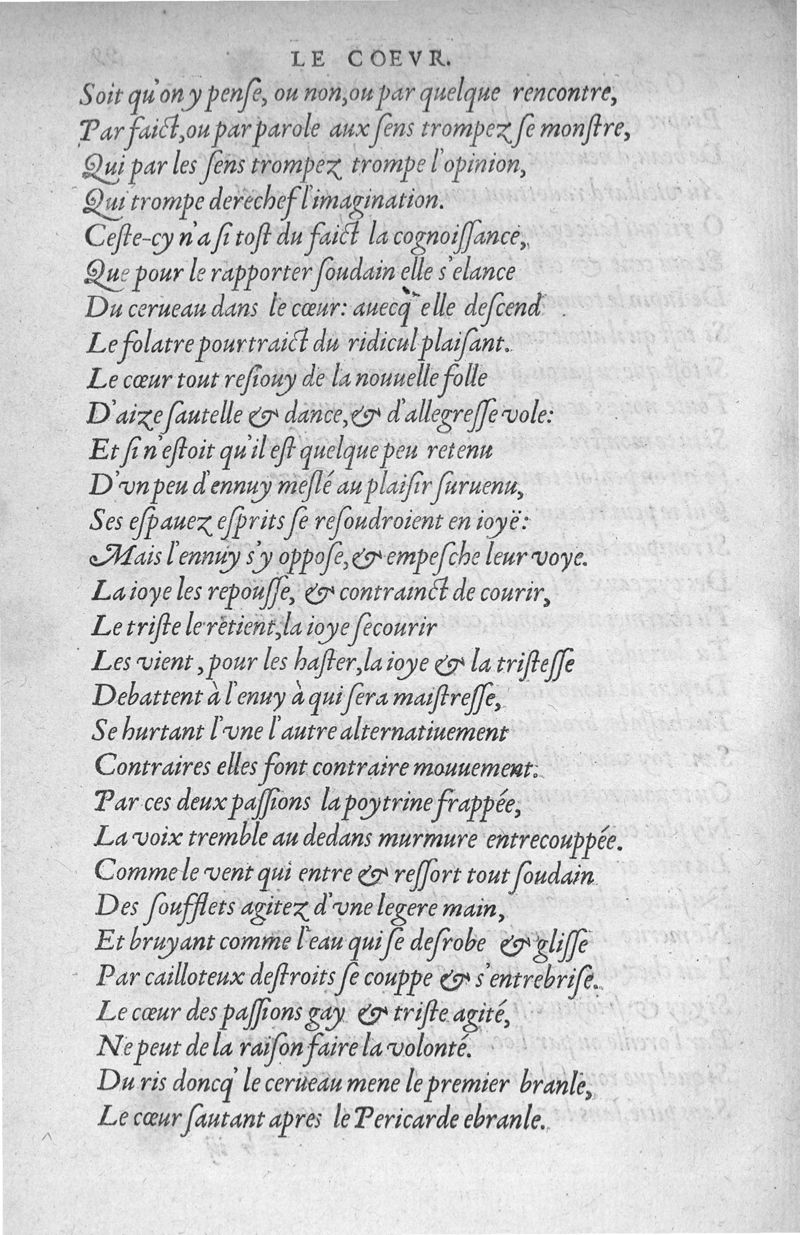 LE COEVR.
Soit qu'on y penſe, ou non, ou par quelque rencontre,
Par faict, ou par parole aux ſens trompez ſe monſtre,
Qui par les ſens trompez trompe l'opinion,
Qui trompe derechef l'imagination.
Ceſte-cy n'a ſi toſt du faict la cognoiſſance,
Que pour le rapporter ſoudain elle s'elance
Du cerueau dans le cœur: auecq' elle deſcend
Le folatre pourtraict du ridicul plaiſant.
Le cœur tout reſiouy de la nouuelle folle
D'aize ſautelle & dance, & d'allegreſſe vole:
Et ſi n'eſtoit qu'il eſt quelque peu retenu
D'vn peu d'ennuy meſlé au plaiſir ſuruenu,
Ses eſpauez eſprits ſe reſoudroient en ioyë:
Mais l'ennuy s'y oppoſe, & empeſche leur voye.
La ioye les repouſſe, & contrainct de courir,
Le triſte le retient, la ioye ſecourir
Les vient, pour les haſter, la ioye & la triſteſſe
Debattent à l'enuy à qui ſera maiſtreſſe,
Se hurtant l'vne l'autre alternatiuement
Contraires elles font contraire mouuement.
Par ces deux paſſions la poytrine frappée,
La voix tremble au dedans murmure entrecouppée.
Comme le vent qui entre & reſſort tout ſoudain
Des ſoufflets agitez d'vne legere main,
Et bruyant comme l'eau qui ſe deſrobe & gliſſe
Par cailloteux deſtroits ſe couppe & s'entrebriſe.
Le cœur des paſſions gay & triſte agité,
Ne peut de la raiſon faire la volonté.
Du ris doncq' le cerueau mene le premier branle,
Le cœur ſautant apres le Pericarde ebranle.